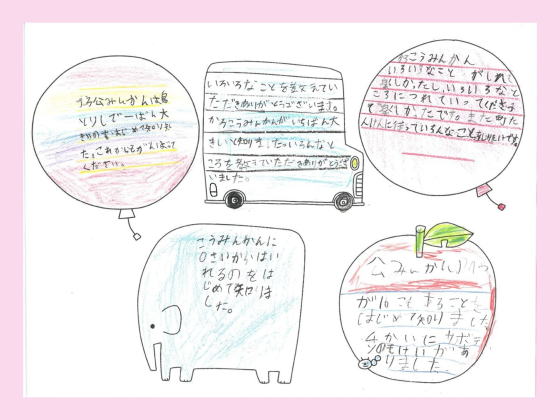 とりしで一ばん大
きいのをはじめて知りまし
た。これからもがんばって
ください。
いろいろなことを教えてい
ただきありがとうございます。
こうみんかんがいちばん大
きいと知りました。いろんなと
ころを教えていただきありがとうござ
いました。
こうみんかん
いろいろなこと
楽しかったし、いろいろなと
ころにつれていってくださっ
て楽しかったです。また町た
んけんに行っていろんなこと
こうみんかんに
0さいからはい
れるのをは
じめて知りま
した。
公みんかん
が10こもあることを
はじめて知りました
4かいにサボテ
ンのもけいがあ
りました